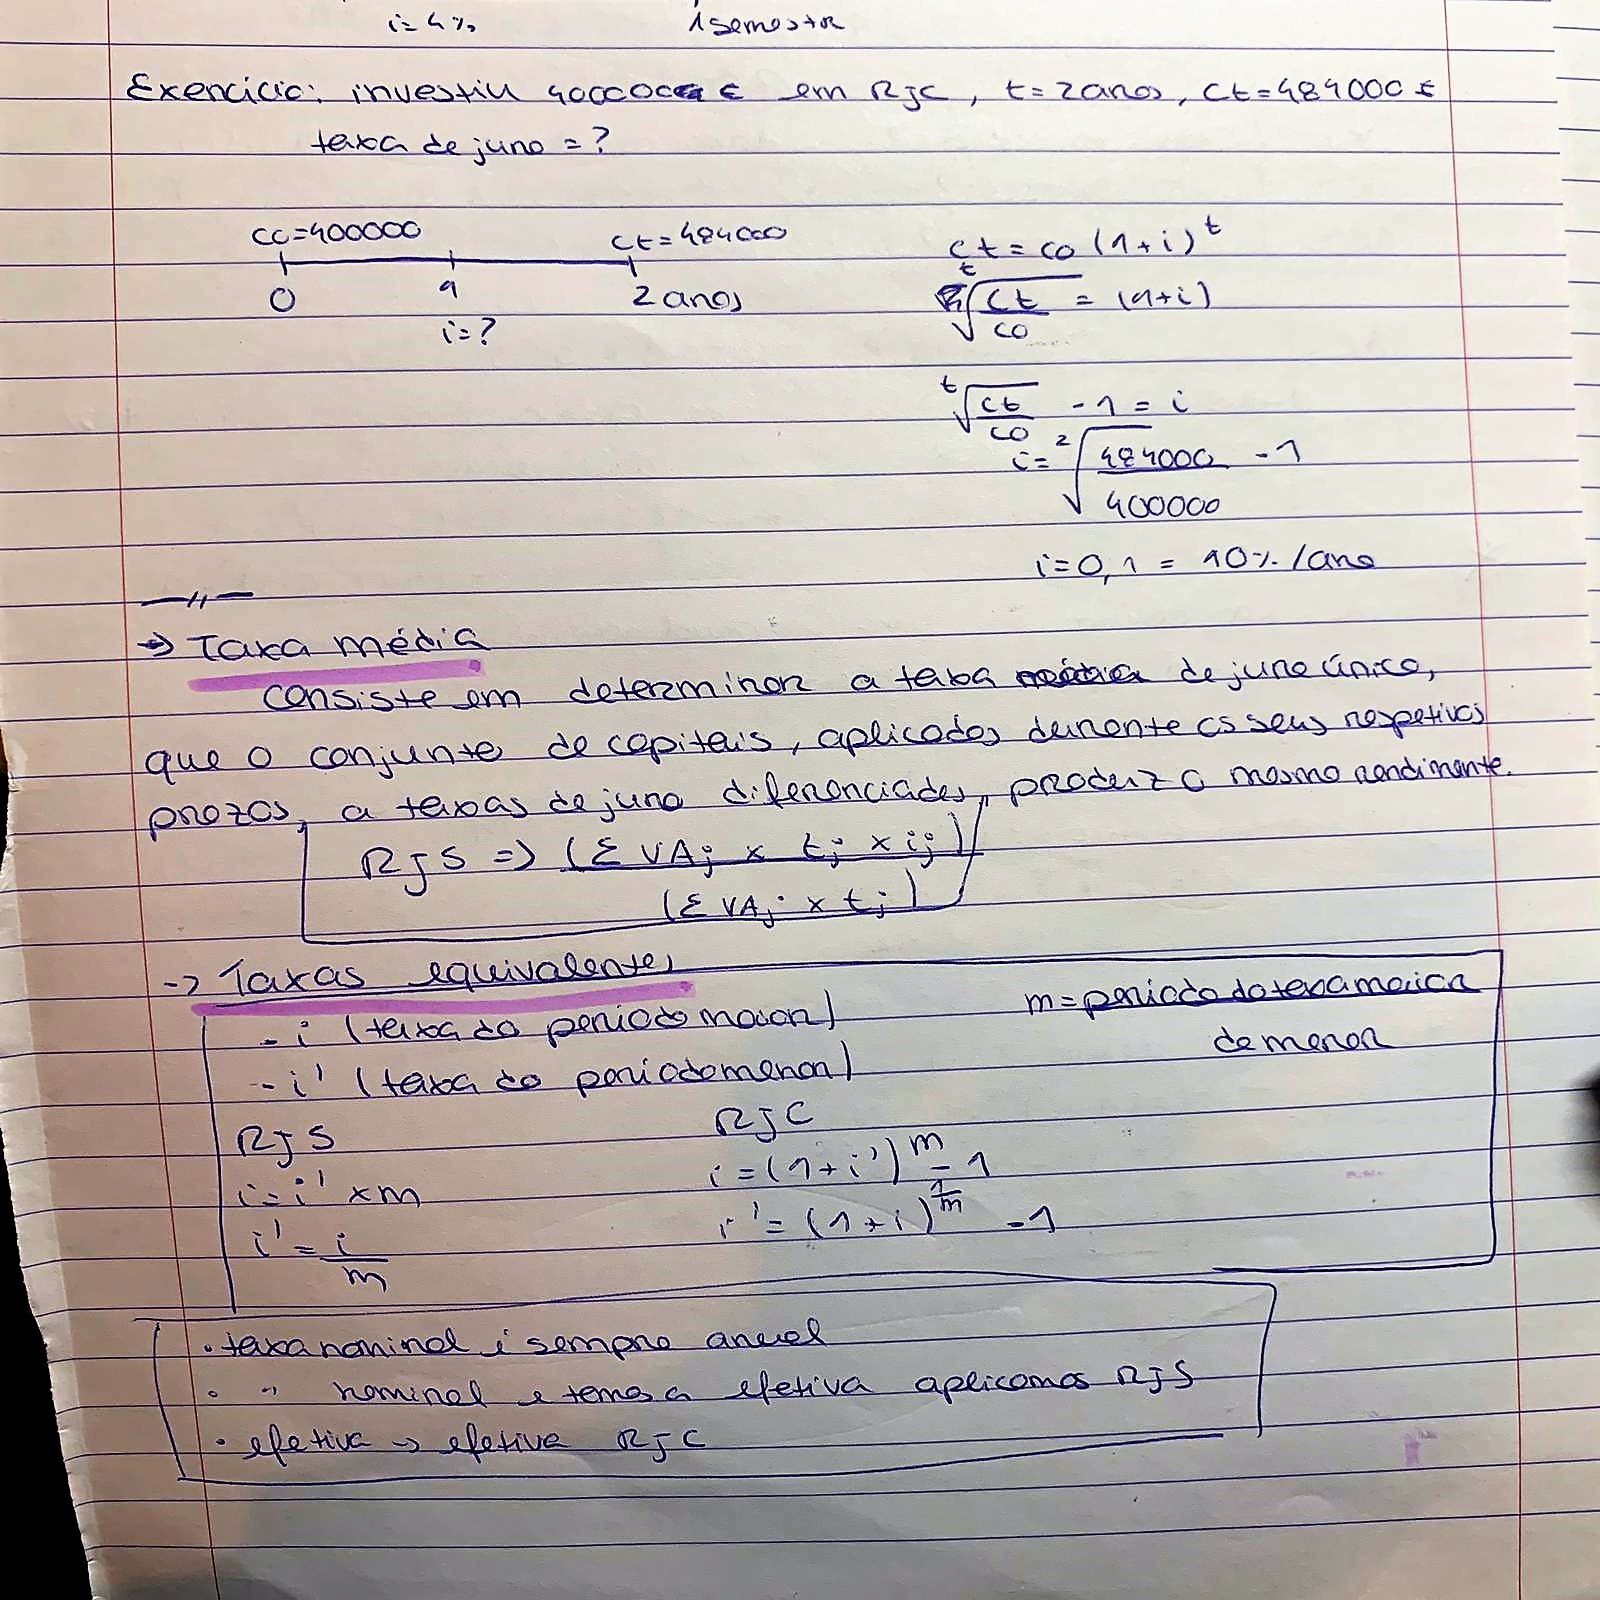 i=4%    1 semestre
Exercício: investiu 400000 € em RJC, t=2anos, Ct=484000 €
taxa de juro = ?
C0=400000    Ct=484000    Ct = C0 (1+i)^t
0    1    2 anos    t√(Ct/C0) = (1+i)
i=?
t√(Ct/C0) - 1 = i
i= 2√(484000/400000) - 1
i=0,1 = 10% /ano
—//—
→ Taxa média
consiste em determinar a taxa de juro único,
que o conjunto de capitais, aplicados durante os seus respetivos
prazos, a taxas de juro diferenciadas, produz o mesmo rendimento.
RJS => (Σ VAj x tj x ij)
(Σ VAj x tj)
-> Taxas equivalentes
- i (taxa do período maior)    m = período da taxa maior
de menor
- i' (taxa do período menor)
RJS    RJC
i = i' x m    i = (1+i')^m - 1
i' = i/m    i' = (1+i)^(1/m) - 1
• taxa nominal é sempre anual
• " nominal e temos a efetiva aplicamos RJS
• efetiva → efetiva RJC